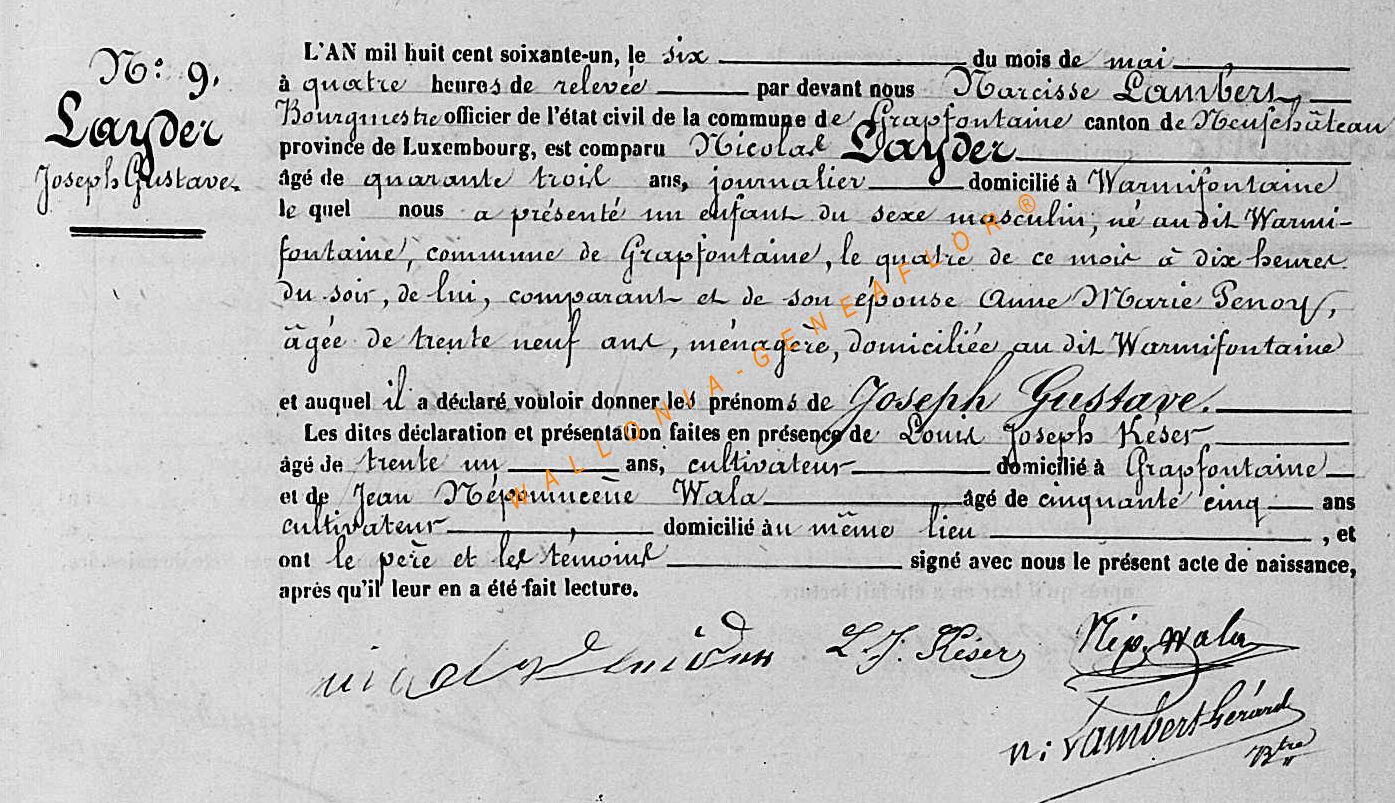 N° 9.
Layder
Joseph Gustave.
L'AN mil huit cent soixante-un, le six du mois de mai
à quatre heures de relevée par devant nous Narcisse Lambert,
Bourgmestre officier de l'état civil de la commune de Grapfontaine canton de Neufchâteau
province de Luxembourg, est comparu Nicolas Layder
âgé de quarante trois ans, journalier domicilié à Warmifontaine
le quel nous a présenté un enfant du sexe masculin, né au dit Warmi-
fontaine, commune de Grapfontaine, le quatre de ce mois à dix heures
du soir, de lui, comparant et de son épouse Anne Marie Penoy,
âgée de trente neuf ans, ménagère, domiciliée au dit Warmifontaine
et auquel il a déclaré vouloir donner les prénoms de Joseph Gustave.
Les dites déclaration et présentation faites en présence de Louis Joseph Késer,
âgé de trente un ans, cultivateur domicilié à Grapfontaine
et de Jean Népomucène Wala âgé de cinquante cinq ans
cultivateur, domicilié au même lieu, et
ont le père et les témoins signé avec nous le présent acte de naissance,
après qu'il leur en a été fait lecture.
L. J. Késer
Nép. Wala
N. Lambert Gérard
Btre
WALLONIA-GENEAFLOR®